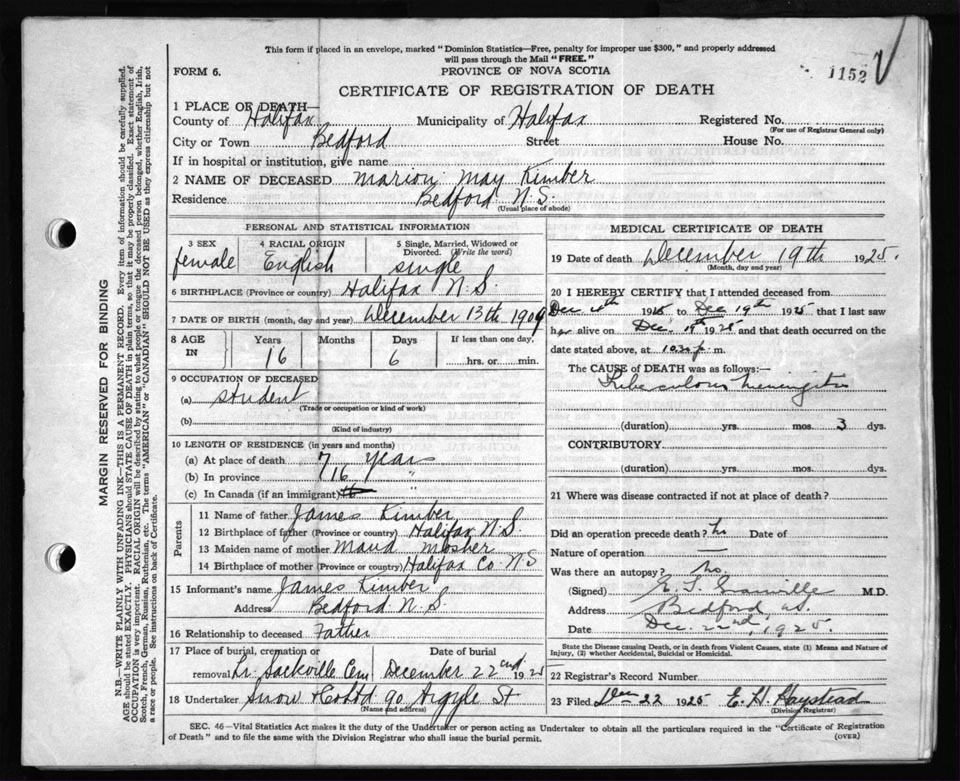 This form if placed in an envelope, marked "Dominion Statistics—Free, penalty for improper use $300," and properly addressed
will pass through the Mail "FREE."
FORM 6.
PROVINCE OF NOVA SCOTIA
1152
CERTIFICATE OF REGISTRATION OF DEATH
1 PLACE OF DEATH—
County of Halifax Municipality of Halifax Registered No.
(For use of Registrar General only)
City or Town Bedford Street House No.
If in hospital or institution, give name
2 NAME OF DECEASED Marion May Kimber
Residence Bedford N.S.
(Usual place of abode)
PERSONAL AND STATISTICAL INFORMATION
3 SEX 4 RACIAL ORIGIN 5 Single, Married, Widowed or
Divorced. (Write the word)
female English single
6 BIRTHPLACE (Province or country) Halifax N.S.
7 DATE OF BIRTH (month, day and year) December 13th 1909
8 AGE IN Years Months Days If less than one day,
16 6 hrs. or min.
9 OCCUPATION OF DECEASED
(a) student
(Trade or occupation or kind of work)
(b)
(Kind of industry)
10 LENGTH OF RESIDENCE (in years and months)
(a) At place of death 7 years
(b) In province 16 "
(c) In Canada (if an immigrant) "
Parents
11 Name of father James Kimber
12 Birthplace of father (Province or country) Halifax N.S
13 Maiden name of mother Maud Mosher
14 Birthplace of mother (Province or country) Halifax Co. N S
15 Informant's name James Kimber
Address Bedford N.S.
16 Relationship to deceased Father
17 Place of burial, cremation or Date of burial
removal Lr. Sackville Cem December 22nd 1925
18 Undertaker Snow & Co Ltd 90 Argyle St
(Name and address)
MEDICAL CERTIFICATE OF DEATH
19 Date of death December 19th 1925.
(Month, day and year)
20 I HEREBY CERTIFY that I attended deceased from
Dec 1925 to Dec 19th 1925 that I last saw
her alive on Dec. 19th 1925 and that death occurred on the
date stated above, at 10.30 p. m.
The CAUSE of DEATH was as follows:—
Tuberculous Meningitis
(duration) yrs. mos. 3 dys.
CONTRIBUTORY
(duration) yrs. mos. dys.
21 Where was disease contracted if not at place of death?
Did an operation precede death? no Date of
Nature of operation —
Was there an autopsy? no.
(Signed) M.D.
Address Bedford N.S.
Date Dec. 22nd, 1925.
State the Disease causing Death, or in death from Violent Causes, state (1) Means and Nature of
Injury, (2) whether Accidental, Suicidal or Homicidal.
22 Registrar's Record Number
23 Filed Dec 22 1925 E. H. Haystead
(Division Registrar)
SEC. 46—Vital Statistics Act makes it the duty of the Undertaker or person acting as Undertaker to obtain all the particulars required in the "Certificate of Registration
of Death" and to file the same with the Division Registrar who shall issue the burial permit.
(OVER)
MARGIN RESERVED FOR BINDING
N.B.—WRITE PLAINLY WITH UNFADING INK—THIS IS A PERMANENT RECORD. Every item of information should be carefully supplied.
AGE should be stated EXACTLY. PHYSICIANS should STATE CAUSE OF DEATH in plain terms, so that it may be properly classified. Exact statement of
OCCUPATION is very important. RACIAL ORIGIN will be described by stating to what people or tongue the deceased person belonged, whether English, Irish,
Scotch, French, German, Russian, Ruthenian, etc. The terms "AMERICAN" or "CANADIAN" SHOULD NOT BE USED as they express citizenship but not
a race or people. See instructions on back of Certificate.